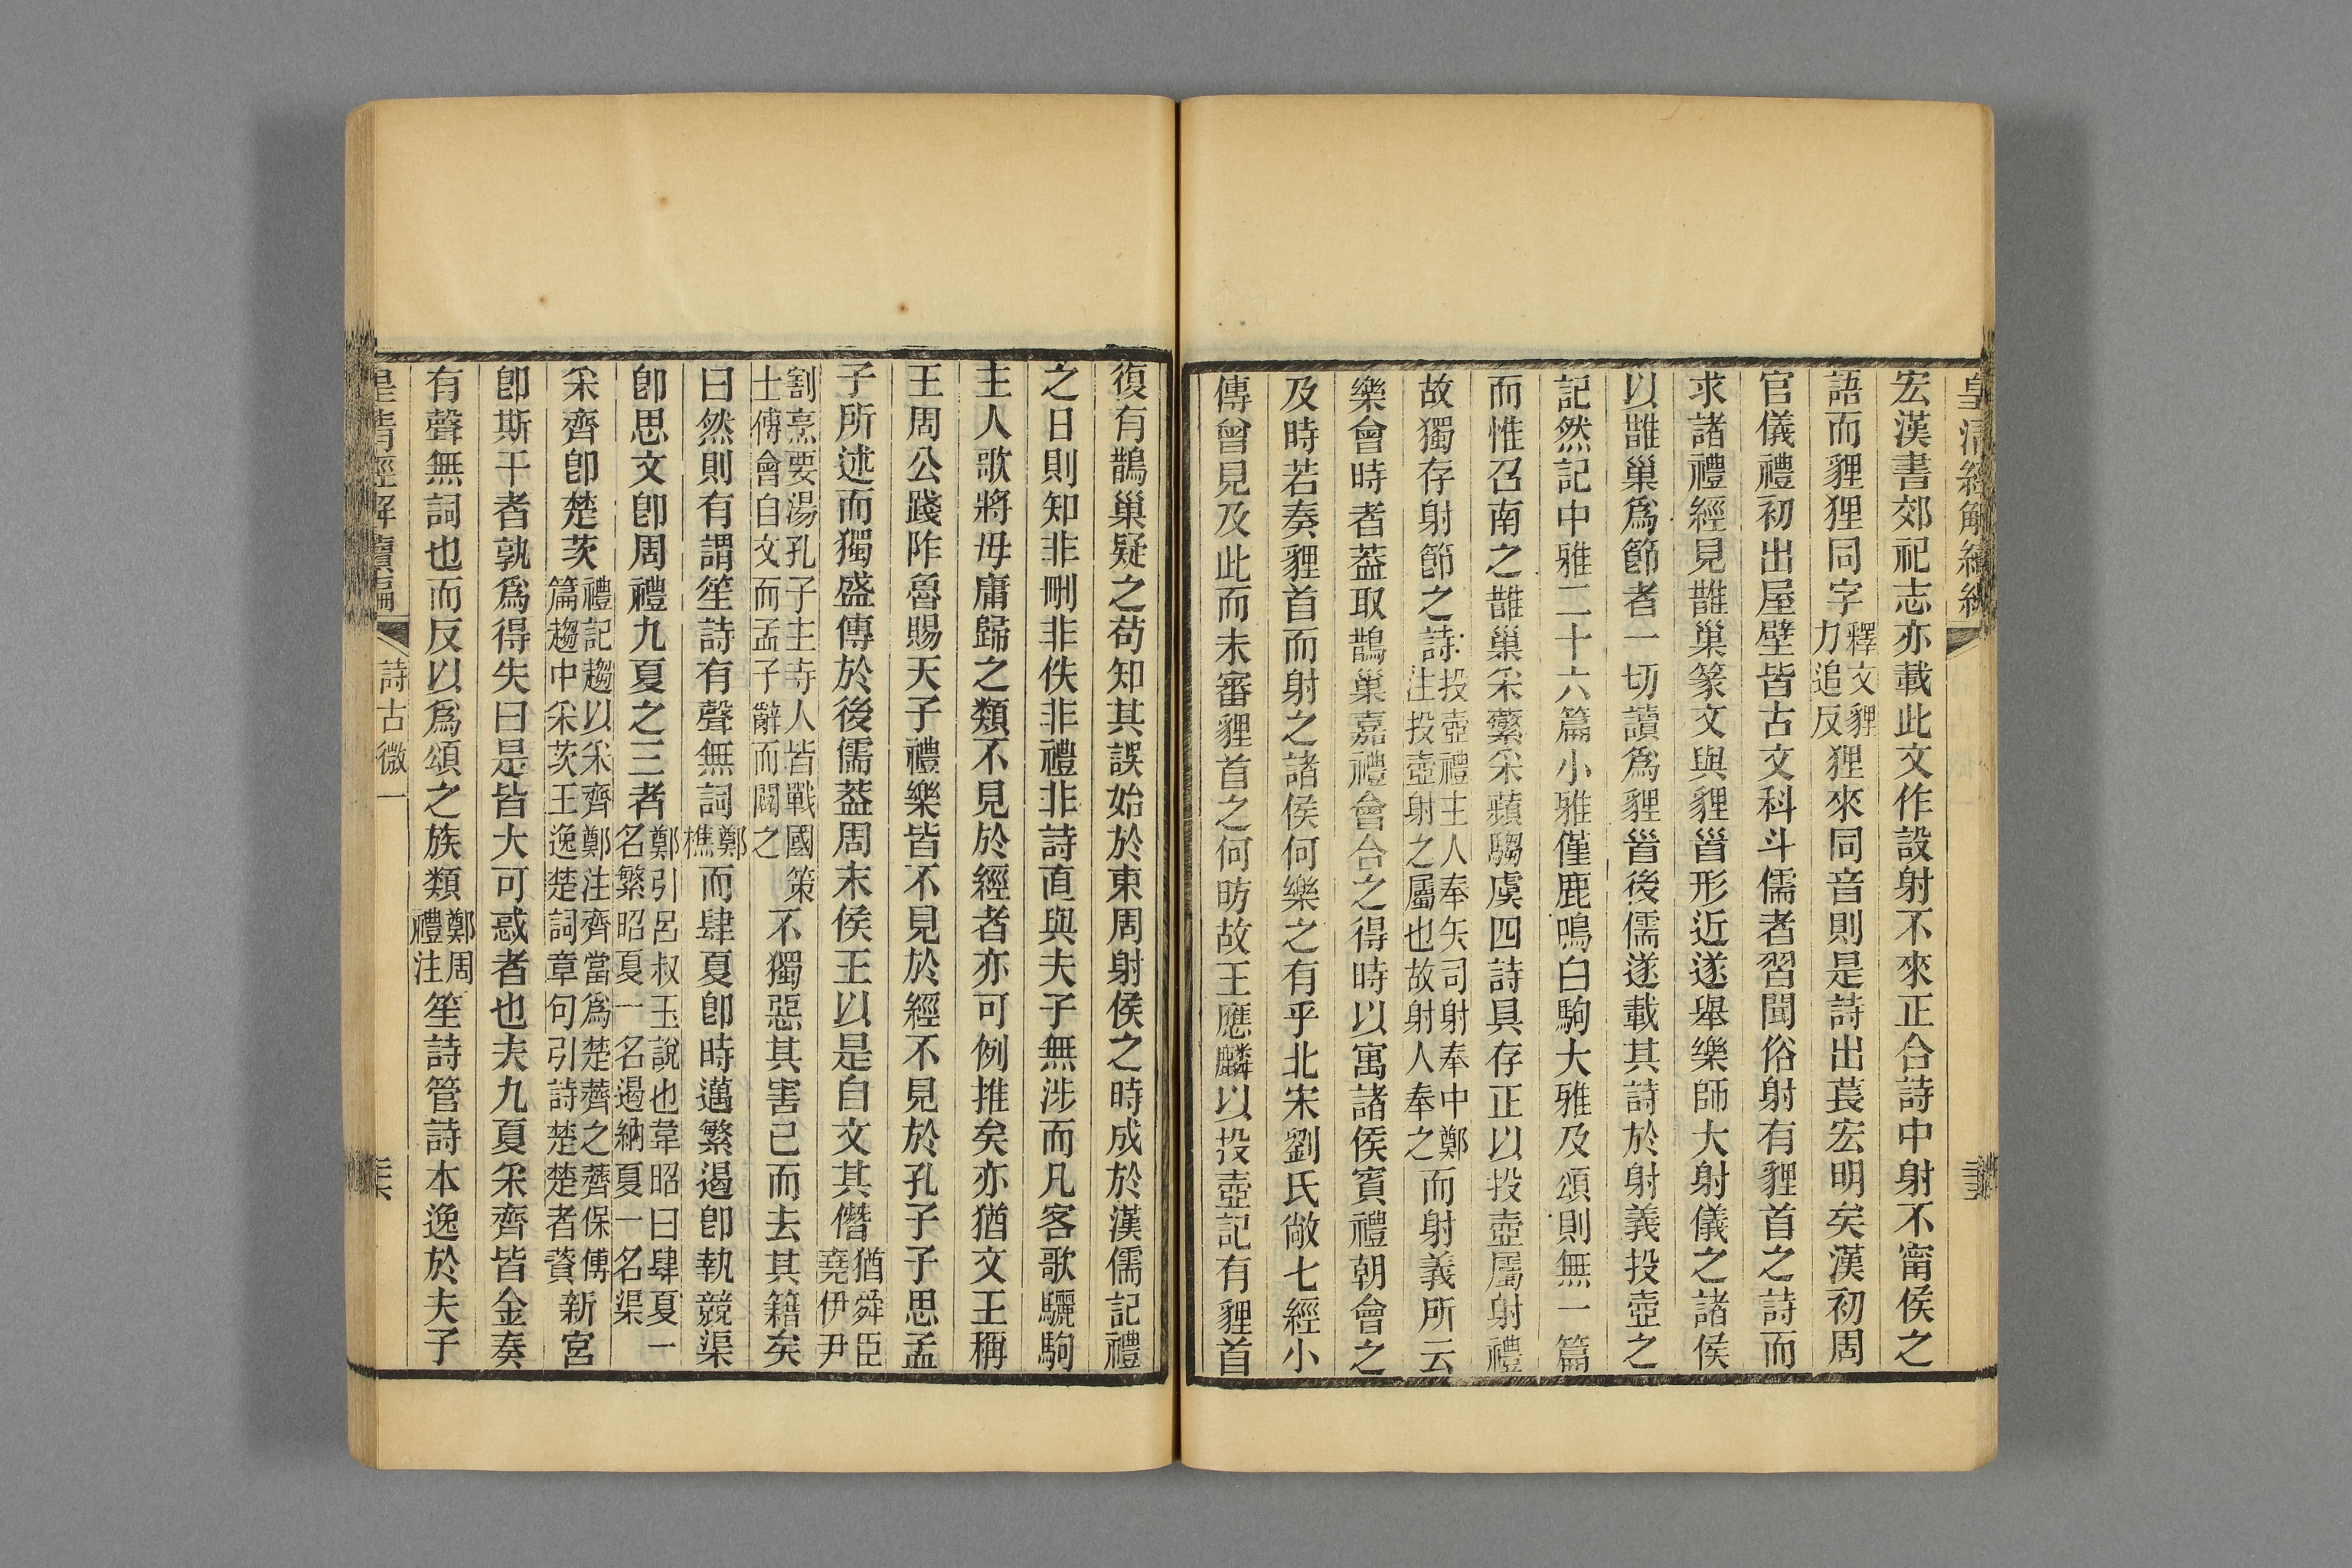 皇清經解續編
宏漢書郊祀志亦載此文作設射不來正合詩中射不甯侯之
語而貍狸同字釋文貍力追反狸來同音則是詩出萇宏明矣漢初周
官儀禮初出屋壁皆古文科斗儒者習聞俗射有貍首之詩而
求諸禮經見鵲巢篆文與貍𩠐形近遂舉樂師大射儀之諸侯
以鵲巢爲節者一切讀爲貍𩠐後儒遂載其詩於射義投壺之
記然記中雅二十六篇小雅僅鹿鳴白駒大雅及頌則無一篇
而惟召南之鵲巢采蘩采蘋騶虞四詩具存正以投壺屬射禮
故獨存射節之詩投壺禮主人奉矢司射奉中鄭注投壺射之屬也故射人奉之而射義所云
樂會時者葢取鵲巢嘉禮會合之得時以寓諸侯賓禮朝會之
及時若奏貍首而射之諸侯何樂之有乎北宋劉氏敞七經小
傳曾見及此而未審貍首之何昉故王應麟以投壺記有貍首
復有鵲巢疑之茍知其誤始於東周射侯之時成於漢儒記禮
之日則知非刪非佚非禮非詩直與夫子無涉而凡客歌驪駒
主人歌將毋庸歸之類不見於經者亦可例推矣亦猶文王稱
王周公踐阼魯賜天子禮樂皆不見於經不見於孔子子思孟
子所述而獨盛傳於後儒葢周末侯王以是自文其僭猶舜臣堯伊尹
割烹要湯孔子主寺人皆戰國策士傅會自文而孟子辭而闢之不獨惡其害己而去其籍矣
曰然則有謂笙詩有聲無詞鄭樵而肆夏卽時邁繁遏卽執競渠
卽思文卽周禮九夏之三者鄭引呂叔玉說也韋昭曰肆夏一名繁昭夏一名遏納夏一名渠
采齊卽楚茨禮記趨以采齊鄭注齊當爲楚薺之薺保傅篇趨中采茨王逸楚詞章句引詩楚楚者薋新宮
卽斯干者孰爲得失曰是皆大可惑者也夫九夏采齊皆金奏
有聲無詞也而反以爲頌之族類鄭周禮注笙詩管詩本逸於夫子
皇清經解續編
詩古微一